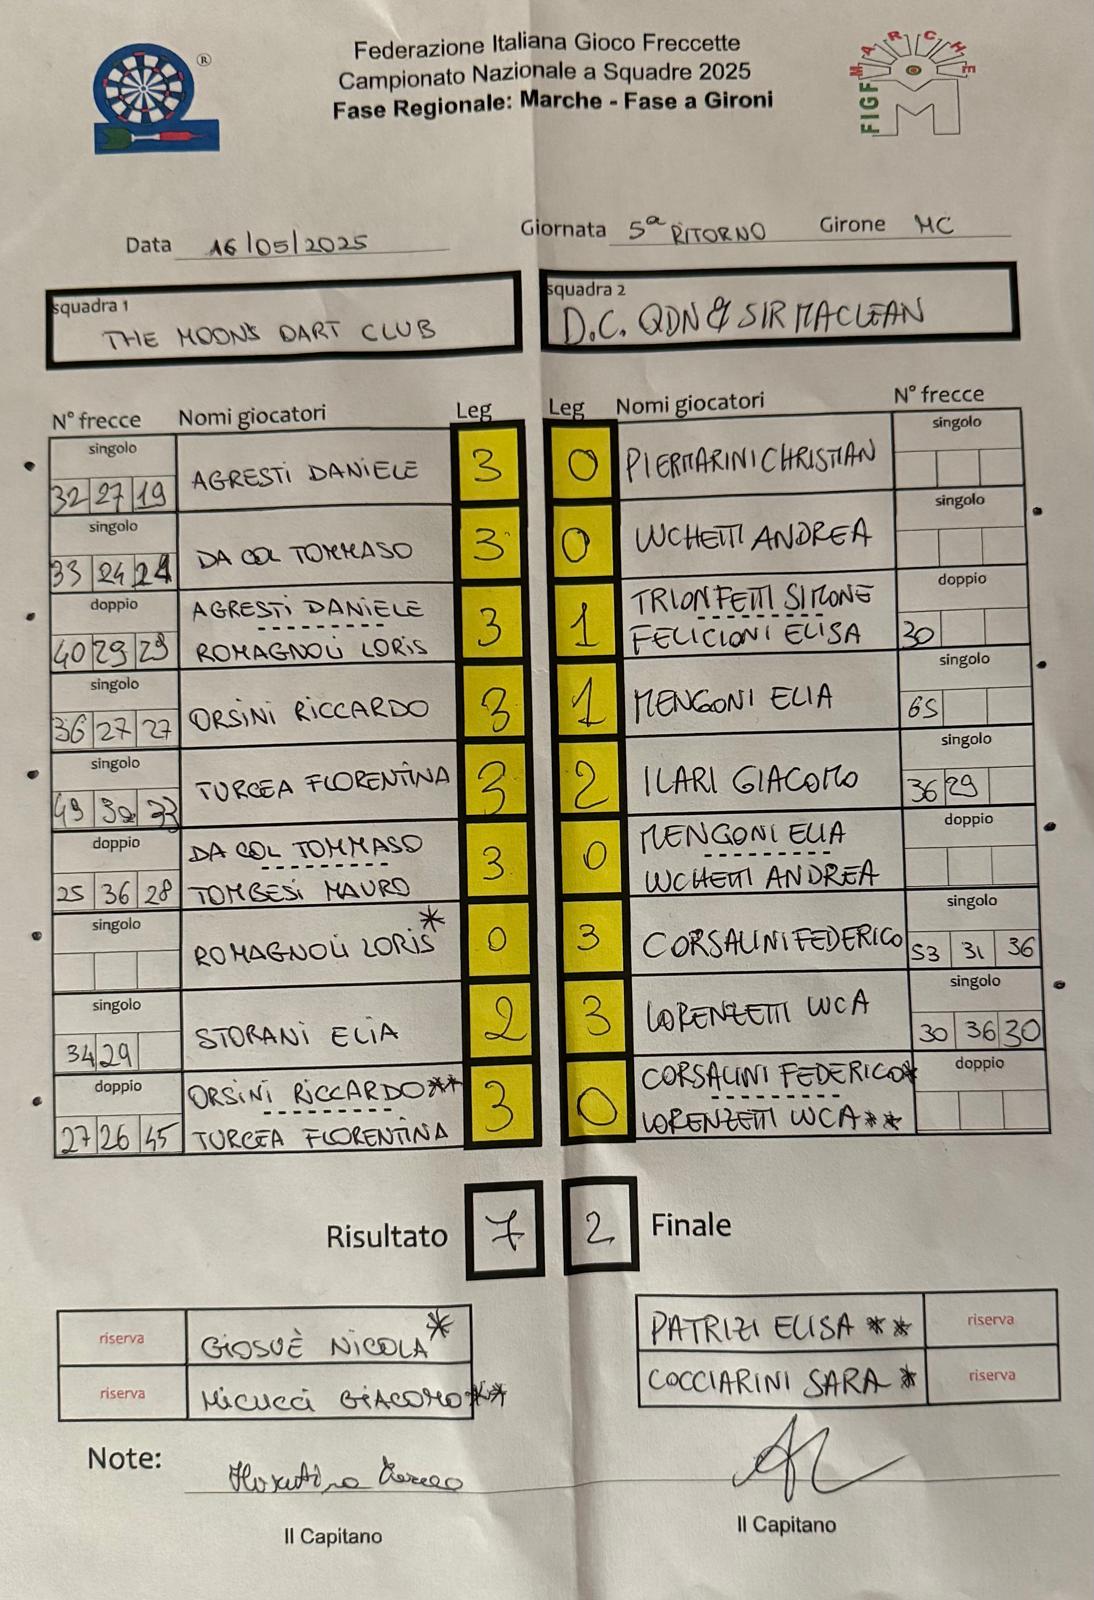 ®
Federazione Italiana Gioco Freccette
Campionato Nazionale a Squadre 2025
Fase Regionale: Marche - Fase a Gironi
MARCHE
FIGF
M
Data 16/05/2025 Giornata 5ª RITORNO Girone MC
squadra 1
THE MOON'S DART CLUB
squadra 2
D.C. QDN & SIR MACLEAN
N° frecce Nomi giocatori Leg Leg Nomi giocatori N° frecce
singolo singolo
32 27 19 AGRESTI DANIELE 3 0 PIERMARINI CHRISTIAN
singolo singolo
33 24 24 DA COL TOMMASO 3 0 LUCHETTI ANDREA
doppio doppio
AGRESTI DANIELE TRIONFETTI SIMONE
40 29 29 ROMAGNOLI LORIS 3 1 FELICIONI ELISA 30
singolo singolo
36 27 27 ORSINI RICCARDO 3 1 MENGONI ELIA 65
singolo singolo
49 32 33 TURCEA FLORENTINA 3 2 ILARI GIACOMO 36 29
doppio doppio
DA COL TOMMASO MENGONI ELIA
25 36 28 TOMBESI MAURO 3 0 LUCHETTI ANDREA
singolo singolo
ROMAGNOLI LORIS* 0 3 CORSALINI FEDERICO 53 31 36
singolo singolo
34 29 STORANI ELIA 2 3 LORENZETTI LUCA 30 36 30
doppio doppio
ORSINI RICCARDO** CORSALINI FEDERICO*
27 26 45 TURCEA FLORENTINA 3 0 LORENZETTI LUCA**
Risultato 7 2 Finale
riserva GIOSUÈ NICOLA* PATRIZI ELISA ** riserva
riserva MICUCCI GIACOMO** COCCIARINI SARA * riserva
Note:
Il Capitano Il Capitano